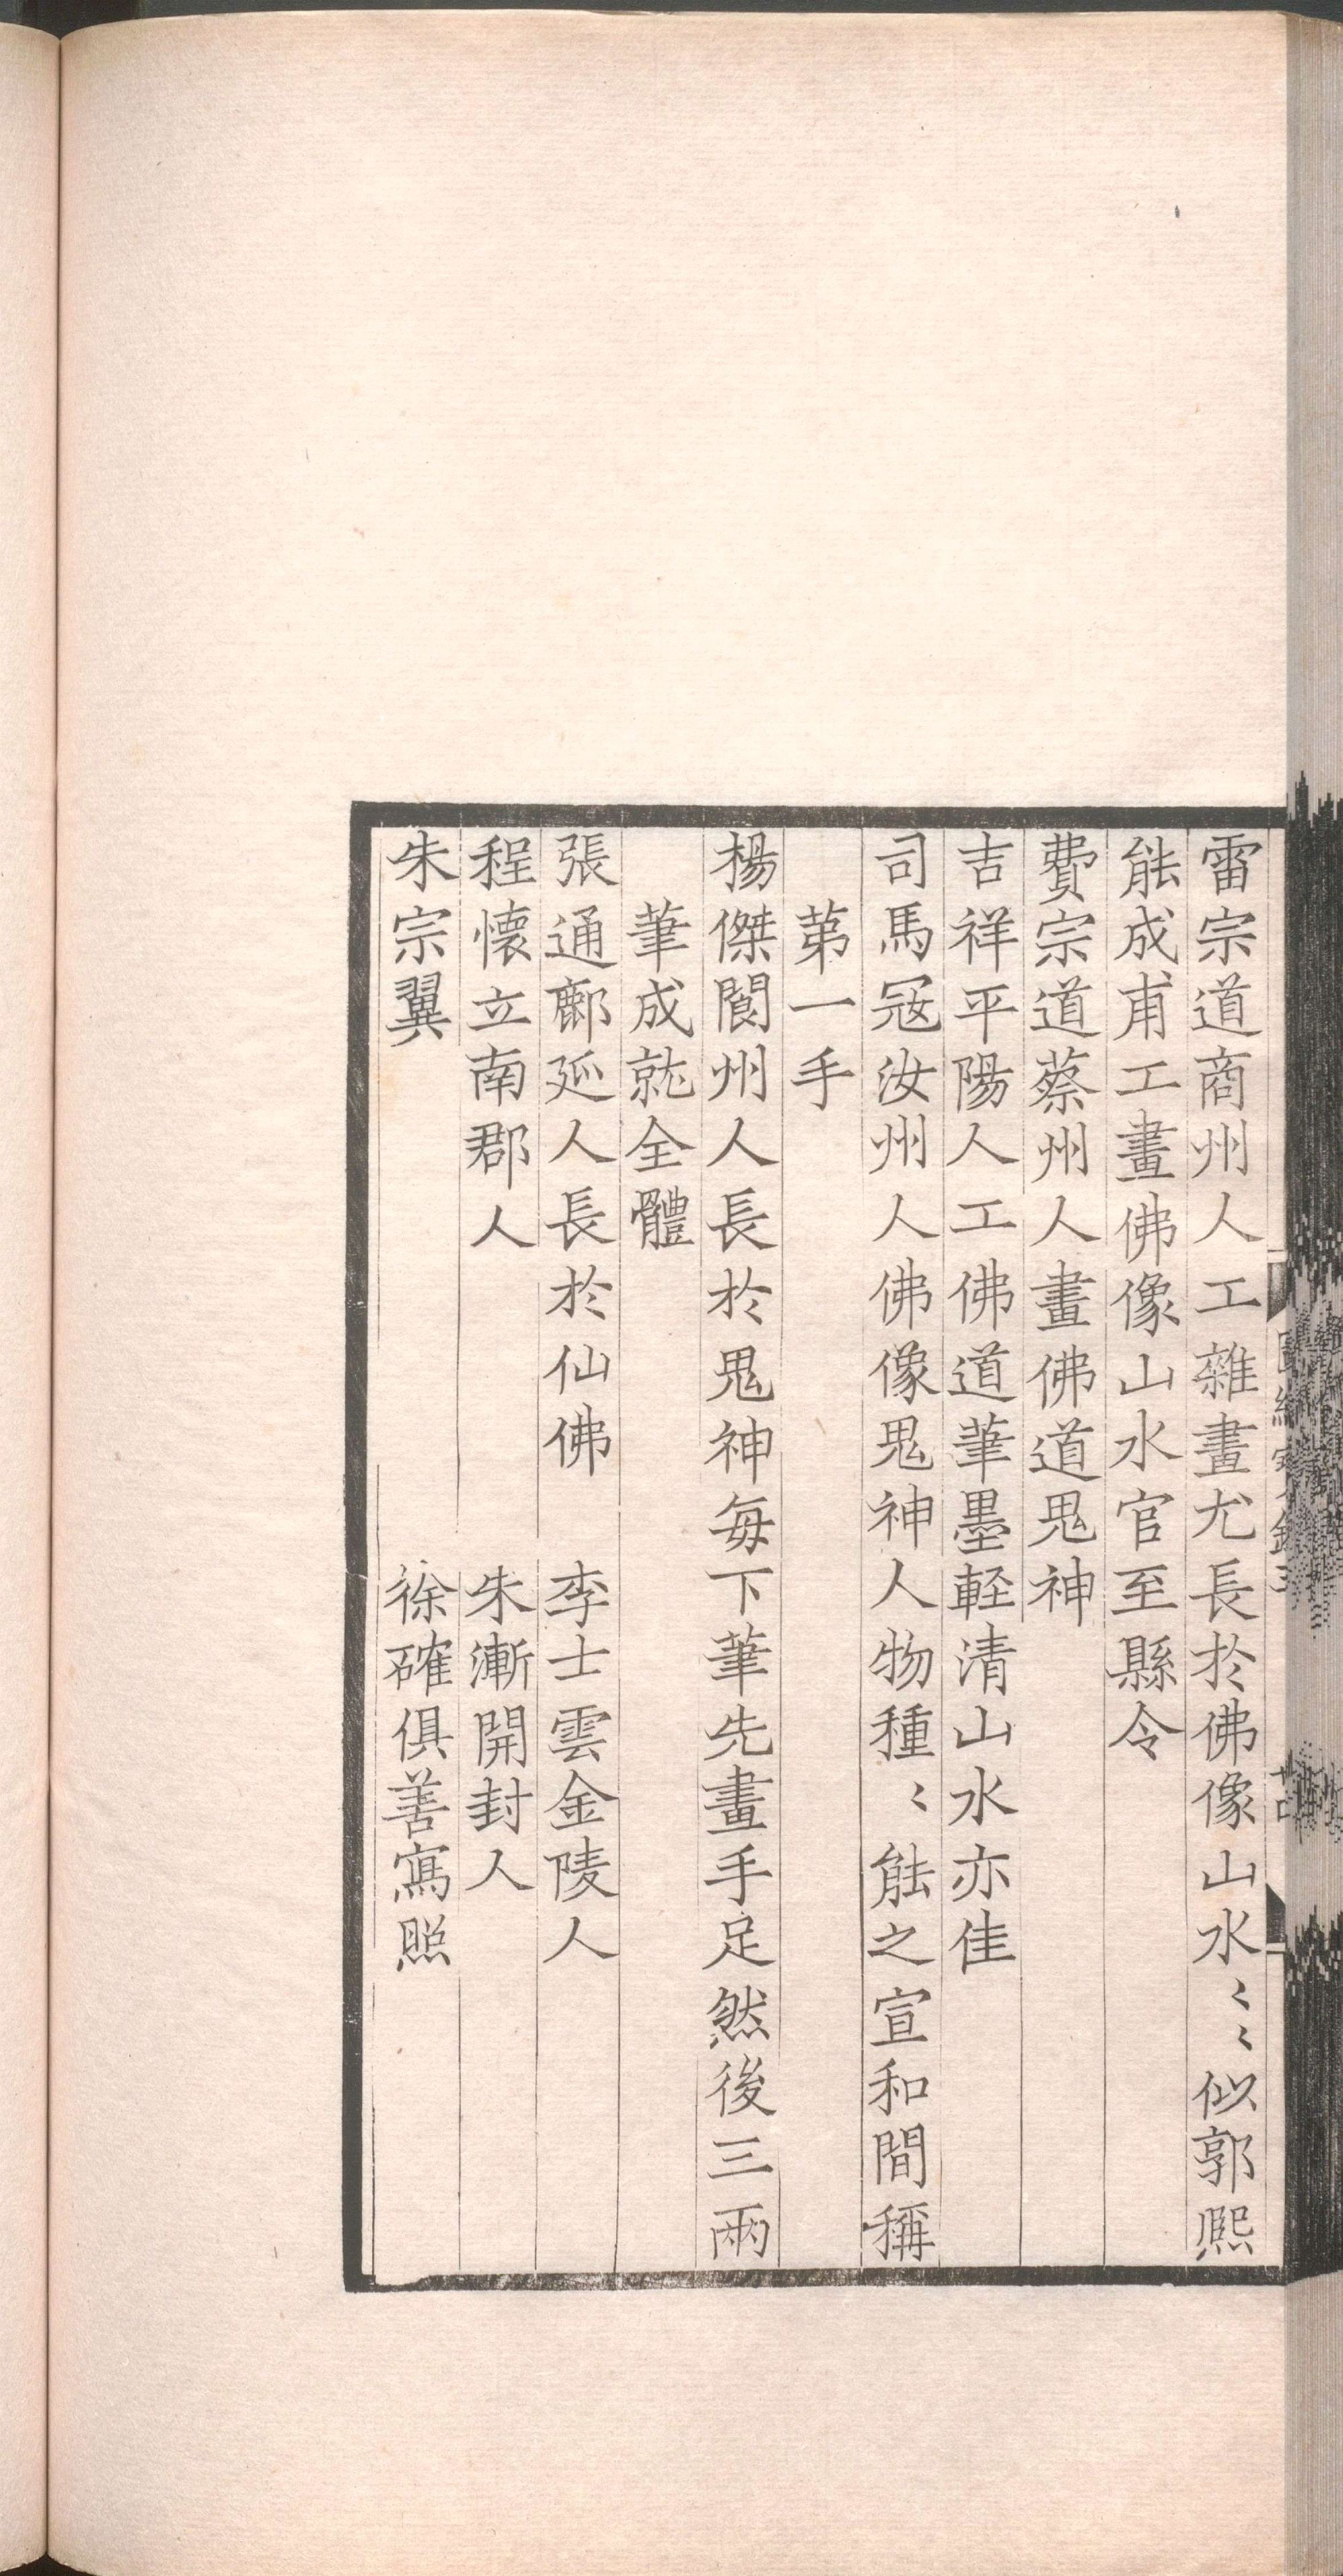 雷宗道商州人工雜畫尤長於佛像山水〻〻似郭熙
能成甫工畫佛像山水官至縣令
費宗道蔡州人畫佛道鬼神
吉祥平陽人工佛道筆墨輕清山水亦佳
司馬寇汝州人佛像鬼神人物種〻能之宣和間稱
第一手
楊傑閬州人長於鬼神每下筆先畫手足然後三兩
筆成就全體
張通鄜延人長於仙佛　李士雲金陵人
程懷立南郡人　朱漸開封人
朱宗翼　徐確俱善寫照